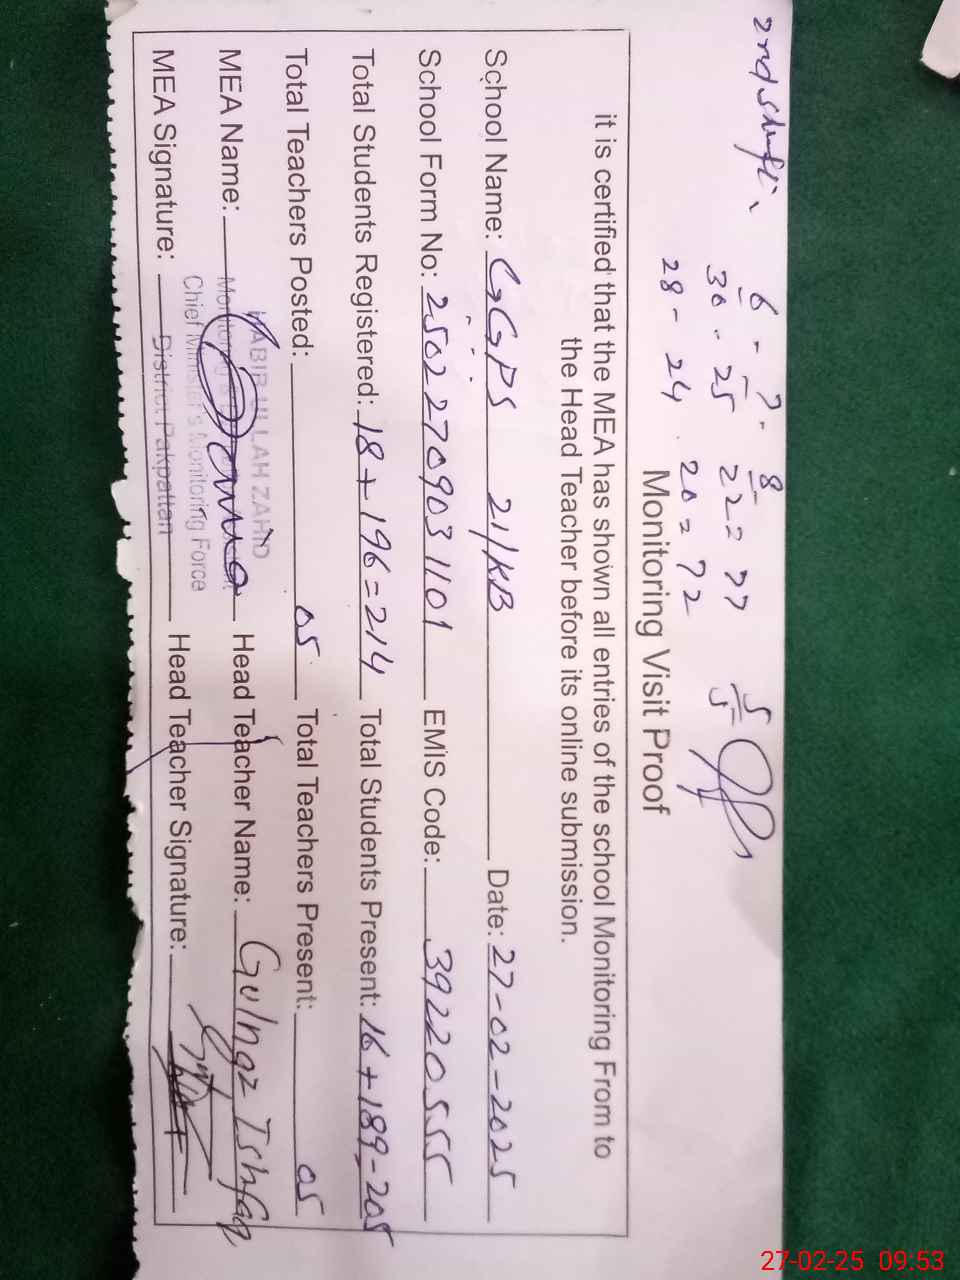 2nd shift
6 - 7 - 8
30 - 25 22 = 77 5
28 - 24 20 = 72 5
Monitoring Visit Proof
it is certified that the MEA has shown all entries of the school Monitoring From to
the Head Teacher before its online submission.
School Name: GGPS 21/KB Date: 27-02-2025
School Form No: 25022709031101 EMiS Code: 39220555
Total Students Registered: 18+196=214 Total Students Present: 16+189-205
Total Teachers Posted: 05 Total Teachers Present: 05
MEA Name: Head Teacher Name: Gulnaz Ishfaq
MEA Signature: Head Teacher Signature:
ULLAH ZAHID
Chief Minister's Monitoring Force
District Pakpattan
27-02-25 09:53